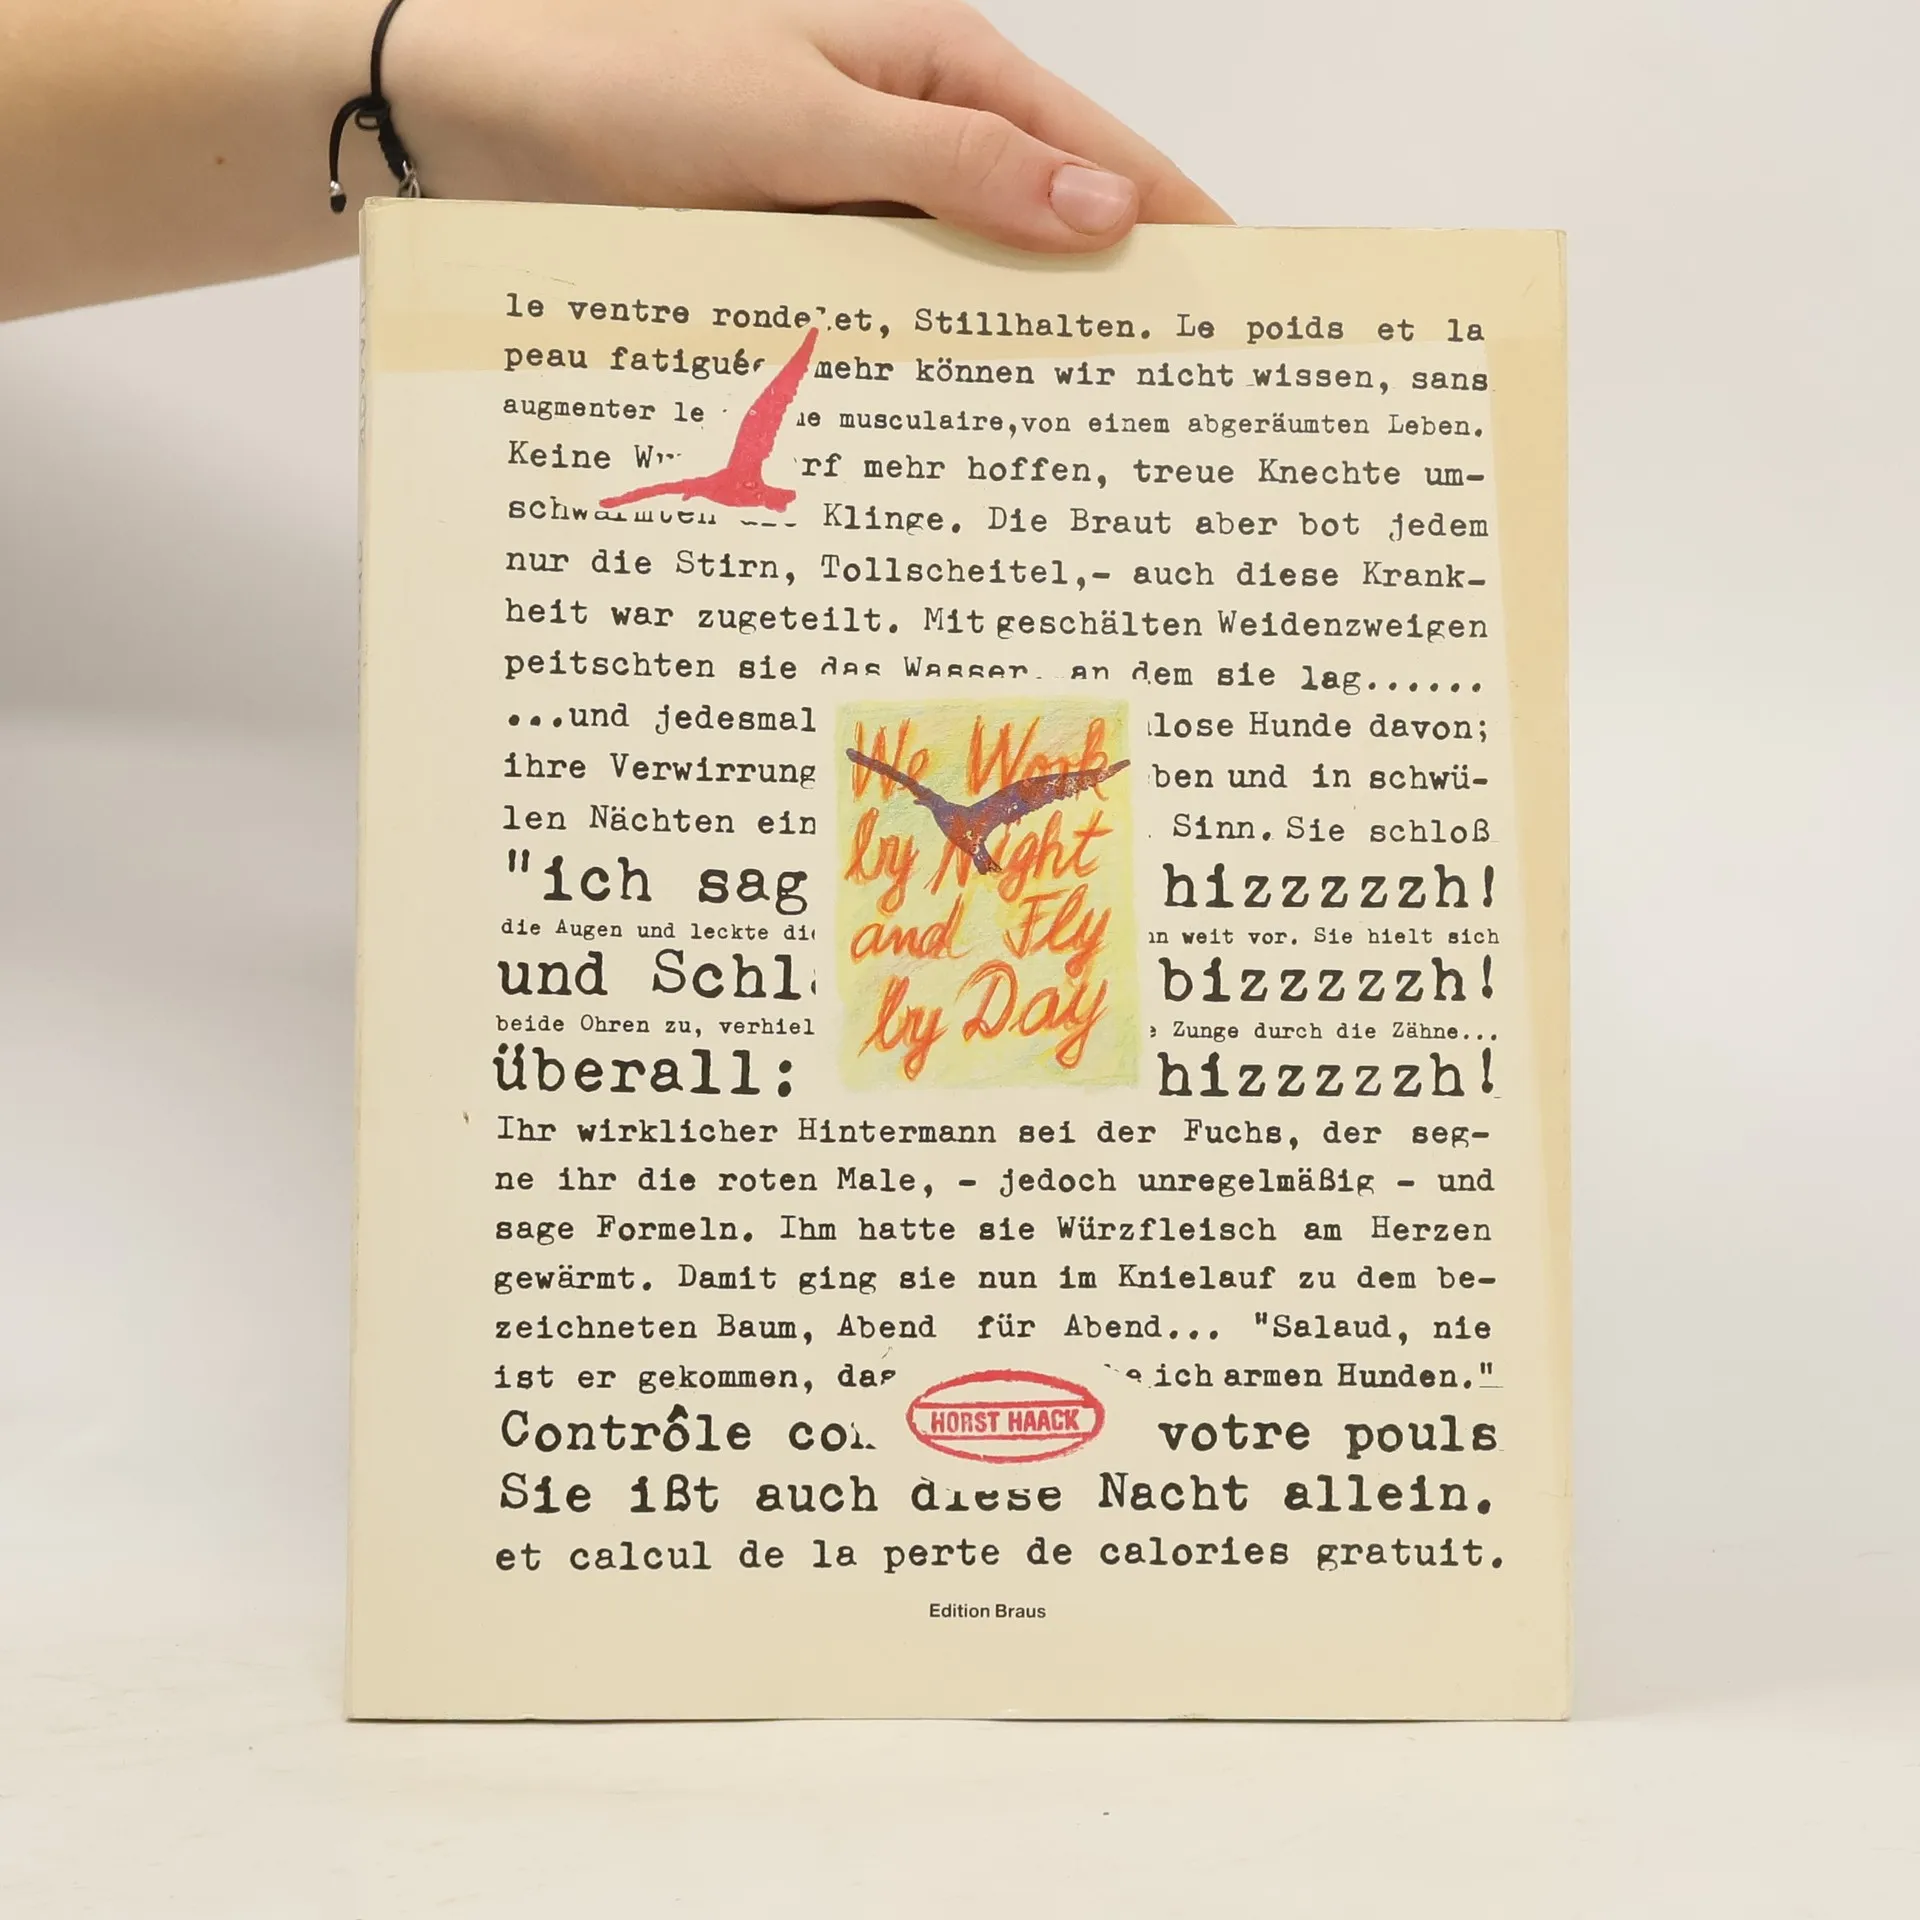 le ventre rondelet, Stillhalten. Le poids et la
peau fatiguée mehr können wir nicht wissen, sans
augmenter le musculaire, von einem abgeräumten Leben.
Keine mehr hoffen, treue Knechte um-
Klinge. Die Braut aber bot jedem
nur die Stirn, Tollscheitel,- auch diese Krank-
heit war zugeteilt. Mit geschälten Weidenzweigen
peitschten sie das Wasser, an dem sie lag......
...und jedesmal lose Hunde davon;
ihre Verwirrung ben und in schwü-
len Nächten ein Sinn. Sie schloß
"ich sag hizzzzzzh!
die Augen und leckte weit vor. Sie hielt sich
und bizzzzzzh!
beide Ohren zu, Zunge durch die Zähne...
überall: hizzzzzzh!
We Work
by Night
and Fly
by Day
Ihr wirklicher Hintermann sei der Fuchs, der seg-
ne ihr die roten Male, - jedoch unregelmäßig - und
sage Formeln. Ihm hatte sie Würzfleisch am Herzen
gewärmt. Damit ging sie nun im Knielauf zu dem be-
zeichneten Baum, Abend für Abend... "Salaud, nie
ist er gekommen, das ich armen Hunden."
Contrôle votre pouls
HORST HAACK
Sie ißt auch diese Nacht allein.
et calcul de la perte de calories gratuit.
Edition Braus